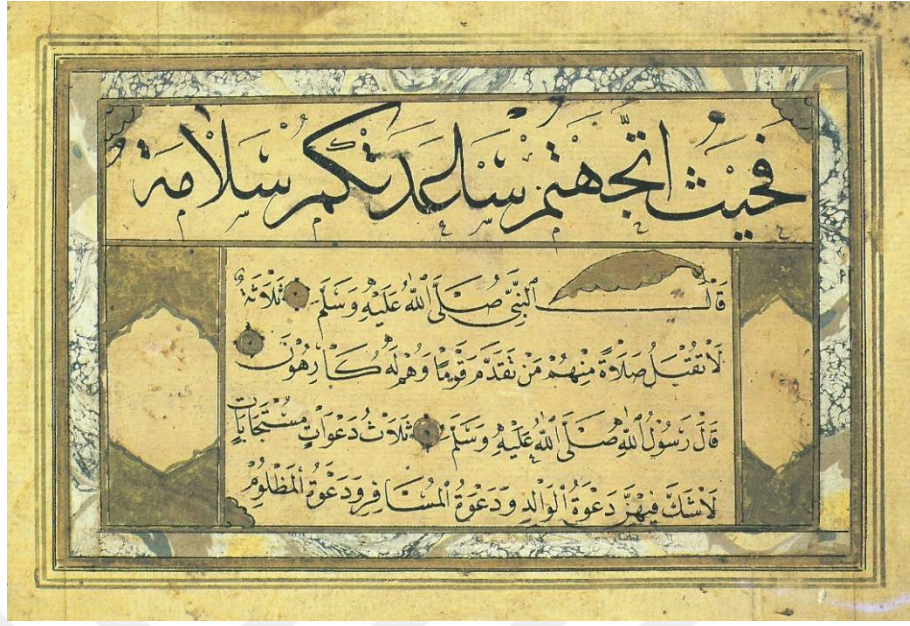 فحيث اتجهتم ساعدتكم سلامة
قَالَ النَّبِيُّ صَلَّى اللّٰهُ عَلَيْهِ وَسَلَّمَ ثَلَاثَةٌ
لَا تُقْبَلُ صَلَاةٌ مِنْهُمْ مَنْ تَقَدَّمَ قَوْمًا وَهُمْ لَهُ كَارِهُونَ
قَالَ رَسُولُ اللّٰهِ صَلَّى اللّٰهُ عَلَيْهِ وَسَلَّمَ ثَلَاثُ دَعَوَاتٍ مُسْتَجَابَاتٌ
لَا شَكَّ فِيهِنَّ دَعْوَةُ الْوَالِدِ وَدَعْوَةُ الْمُسَافِرِ وَدَعْوَةُ الْمَظْلُومِ